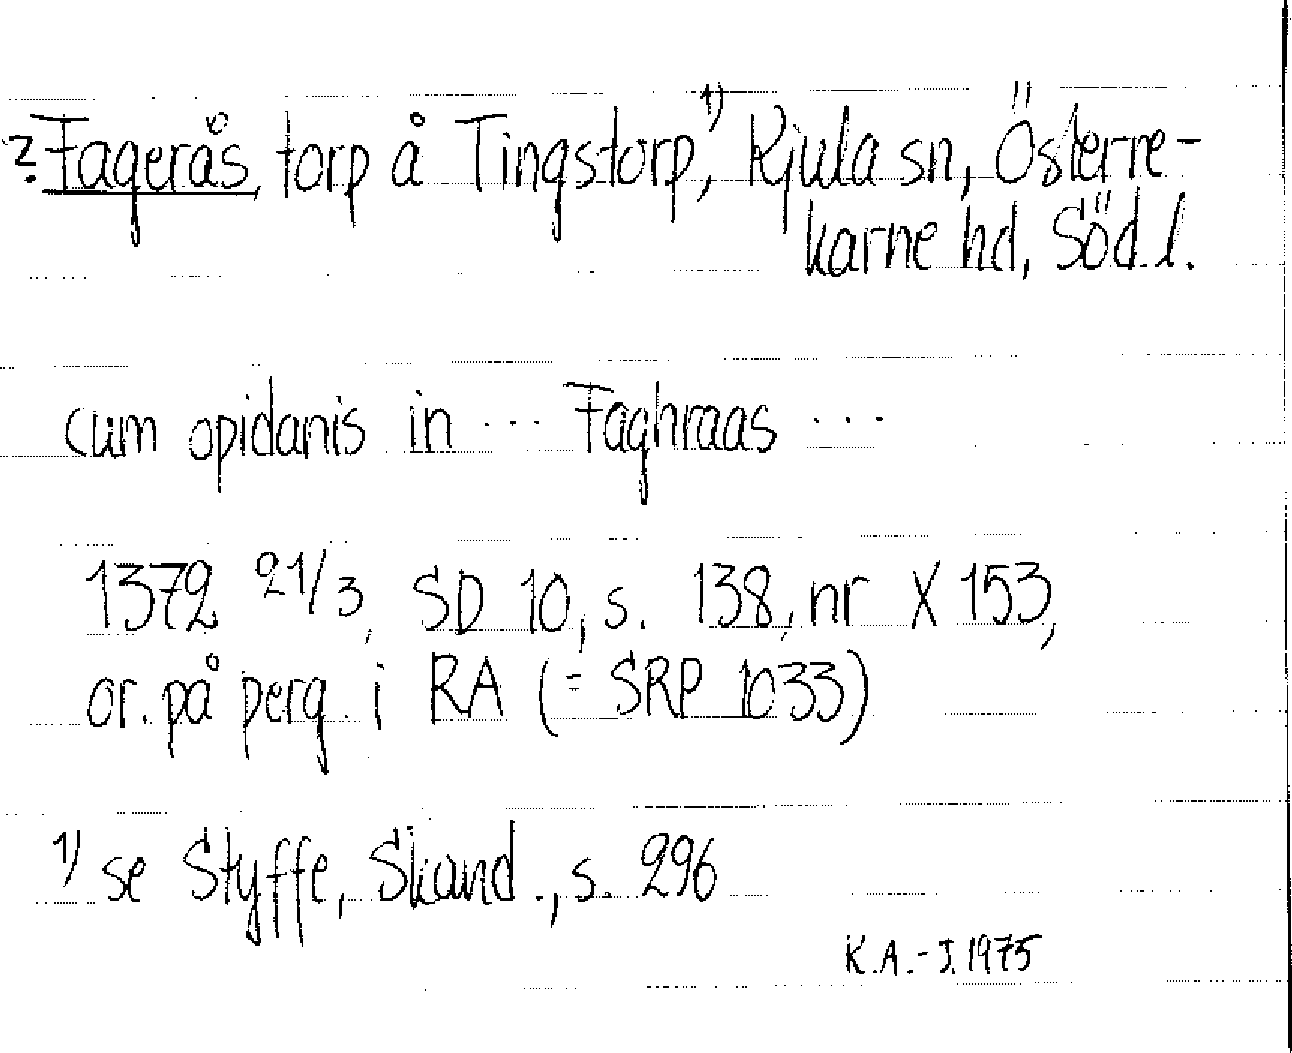 ? Fagerås, torp å Tingstorp,¹⁾ Kjula sn, Österre-
karne hd, Söd. l.
cum opidanis in ... Faghraas ...
1372 21/3, SD 10, s. 138, nr X 153,
or. på perg. i RA (= SRP 1033)
¹⁾ se Styffe, Skand., s. 296
K.A.-J. 1975